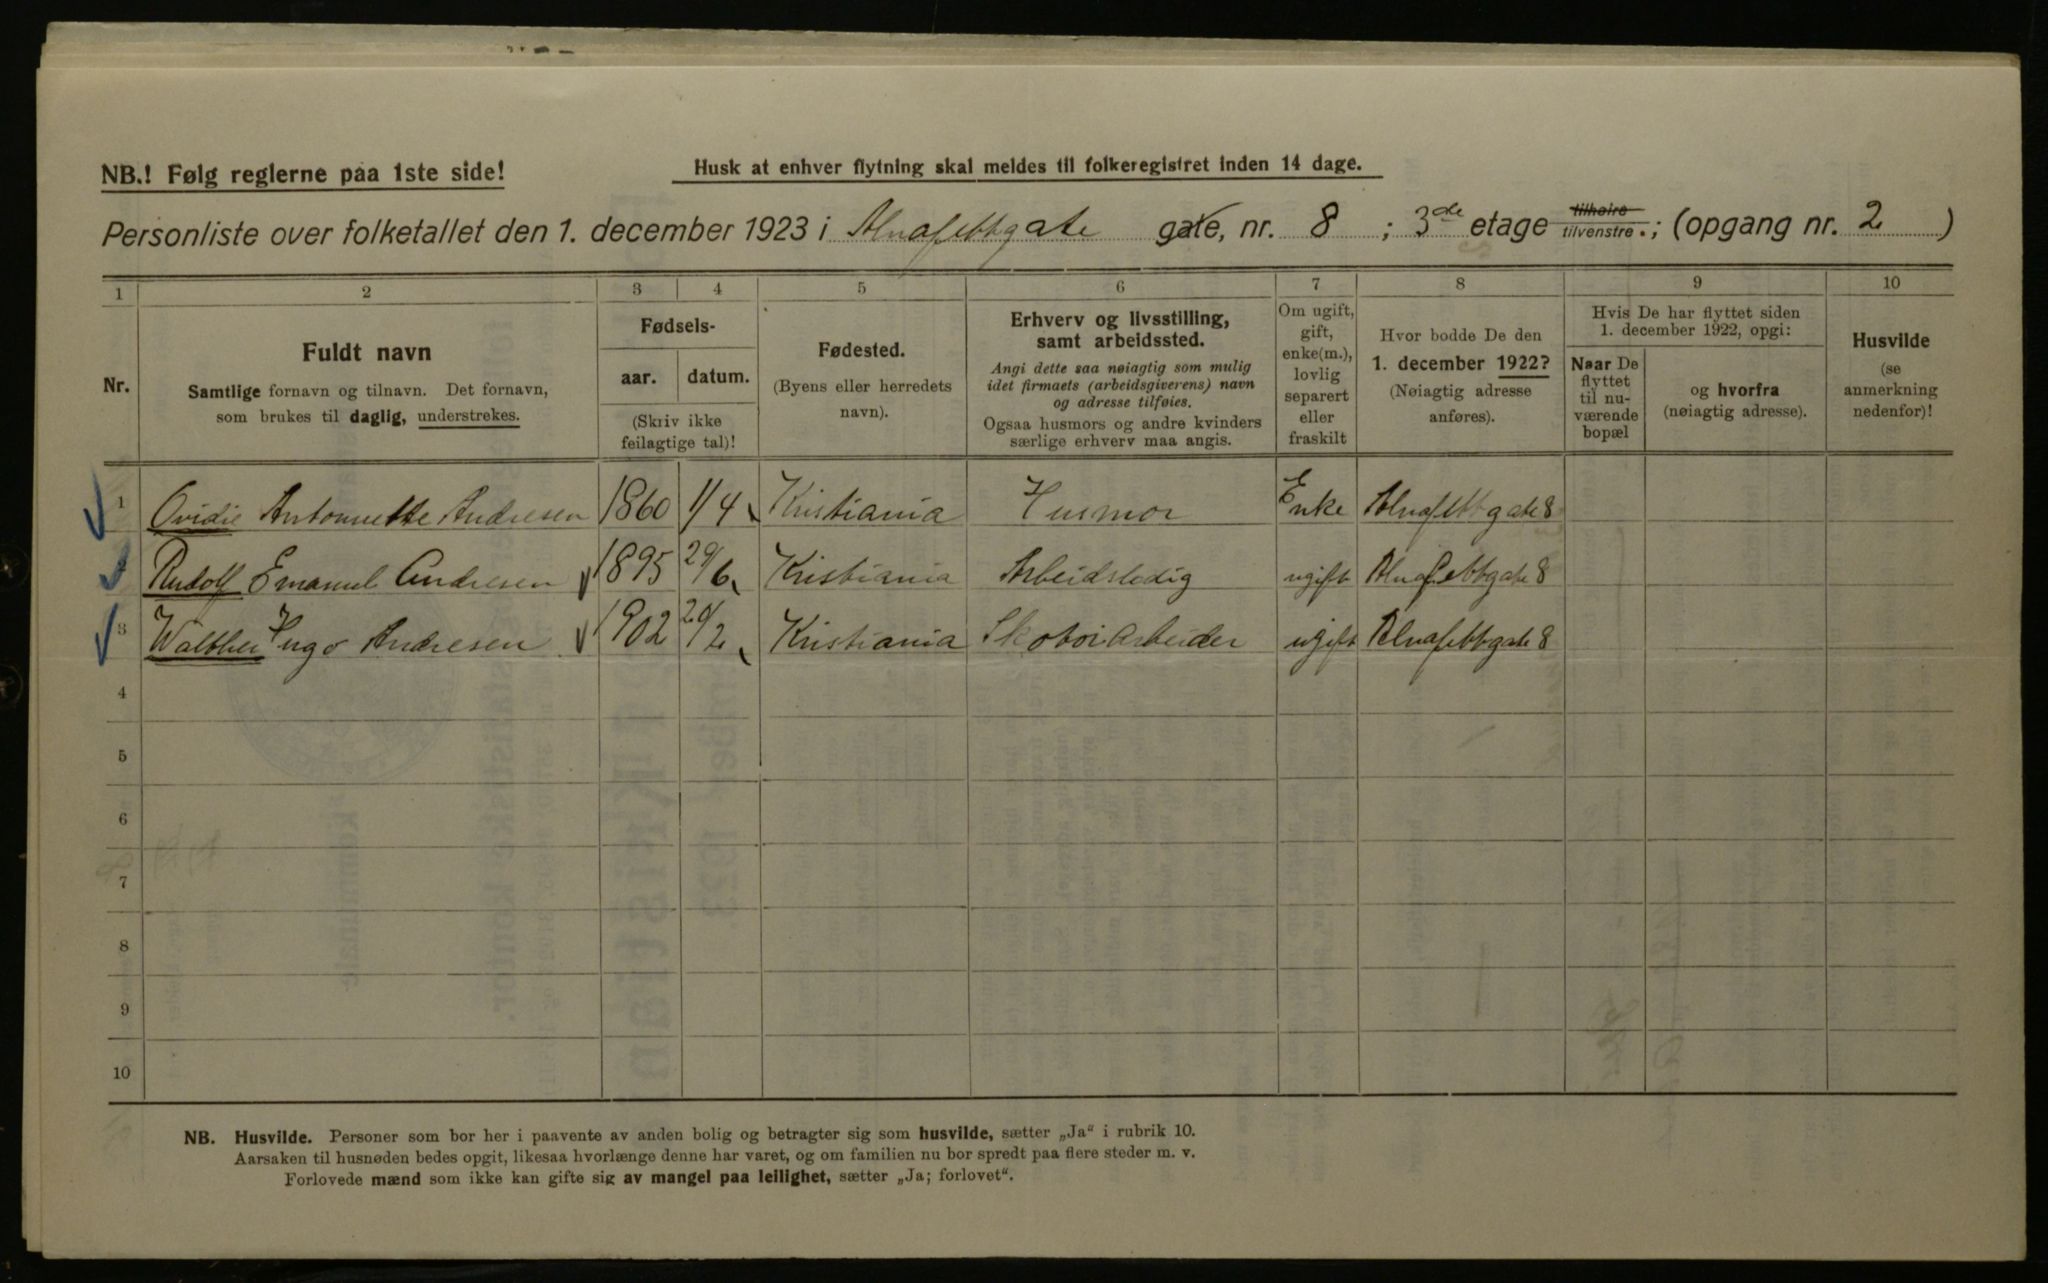 NB.! Følg reglerne paa 1ste side!
Husk at enhver flytning skal meldes til folkeregistret inden 14 dage.
Personliste over folketallet den 1. december 1923 i Alnafettgate gate, nr. 8 ; 3de etage tilhøire tilvenstre.; (opgang nr. 2 )
1 2 3 4 5 6 7 8 9 10
Nr.
Fuldt navn
Samtlige fornavn og tilnavn. Det fornavn,
som brukes til daglig, understrekes.
Fødsels-
aar. datum.
(Skriv ikke
feilagtige tal)!
Fødested.
(Byens eller herredets
navn).
Erhverv og livsstilling,
samt arbeidssted.
Angi dette saa nøiagtig som mulig
idet firmaets (arbeidsgiverens) navn
og adresse tilføies.
Ogsaa husmors og andre kvinders
særlige erhverv maa angis.
Om ugift,
gift,
enke(m.),
lovlig
separert
eller
fraskilt
Hvor bodde De den
1. december 1922?
(Nøiagtig adresse
anføres).
Hvis De har flyttet siden
1. december 1922, opgi:
Naar De
flyttet
til nu-
værende
bopæl
og hvorfra
(nøiagtig adresse).
Husvilde
(se
anmerkning
nedenfor)!
1 Ovidie Antonnette Andresen 1860 1/4 Kristiania Husmor Enke Alnafettgate 8
Rudolf Emanuel Andresen 1895 29/6 Kristiania Arbeidsledig ugift Alnafettgate 8
3 Walther Hugo Andresen 1902 /2 Kristiania Skotøiarbeider ugift Alnafettgate 8
4
5
6
7
8
9
10
NB. Husvilde. Personer som bor her i paavente av anden bolig og betragter sig som husvilde, sætter „Ja" i rubrik 10.
Aarsaken til husnøden bedes opgit, likesaa hvorlænge denne har varet, og om familien nu bor spredt paa flere steder m. v.
Forlovede mænd som ikke kan gifte sig av mangel paa leilighet, sætter „Ja; forlovet".